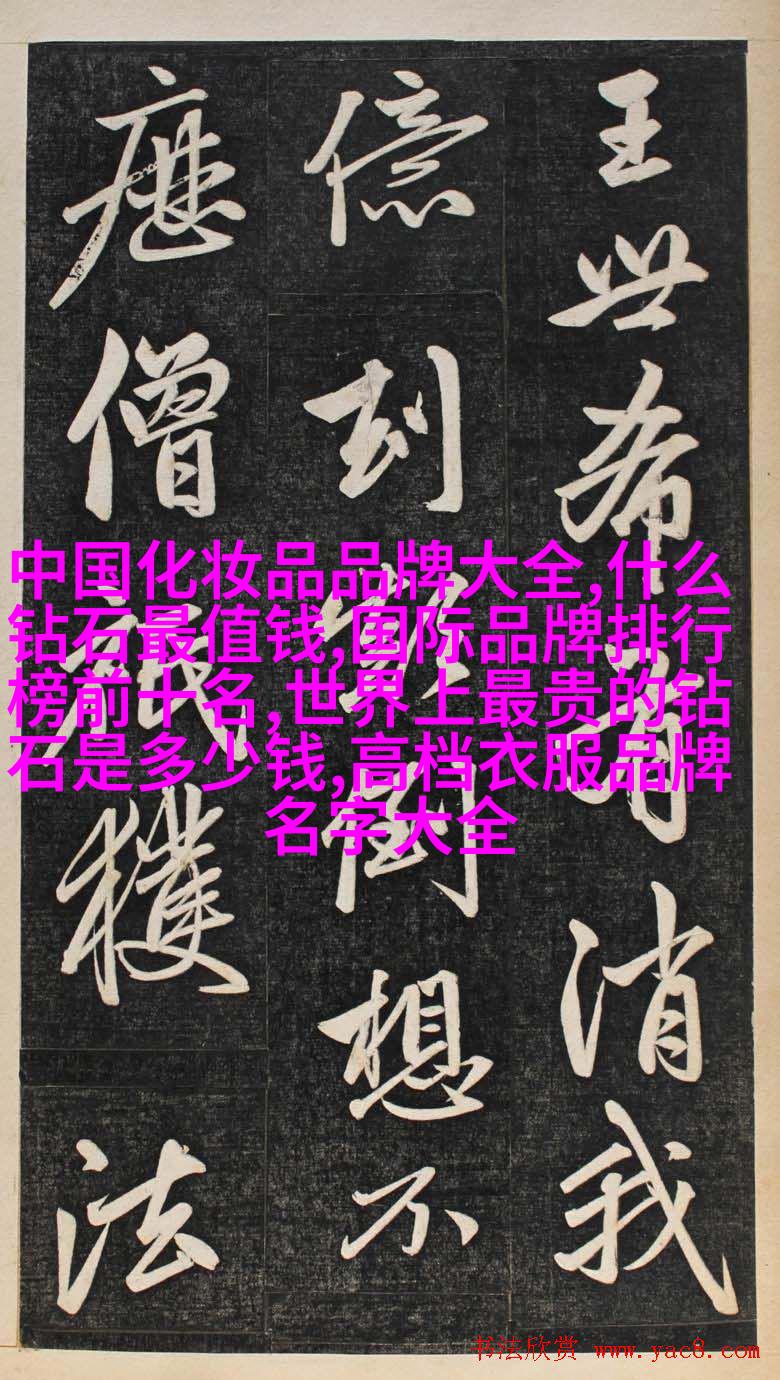 王世希有消我
億刧顛倒想不
歷僧祇穫法
中国化妆品品牌大全,什么
钻石最值钱,国际品牌排行
榜前十名,世界上最贵的钻
石是多少钱,高档衣服品牌
名字大全
书法欣赏 www.yac8.com